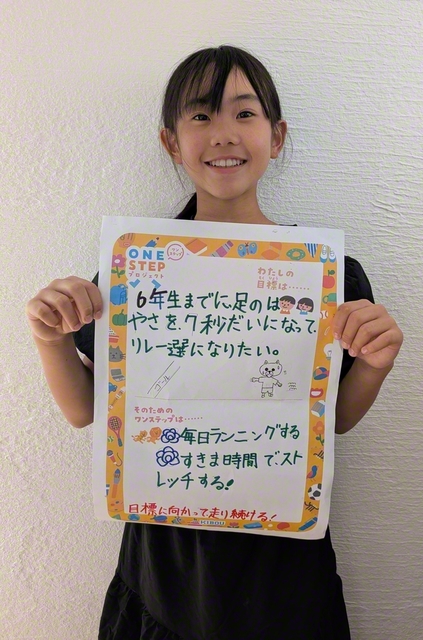 ONE
STEP
プロジェクト
わたしの
目標は……
6年生までに、足のは
やさを、7秒だいになって、
リレー選になりたい。
ゴール
そのための
ワンステップは……
毎日ランニングする
すきま時間で、スト
レッチする!
目標に向かって走り続ける!